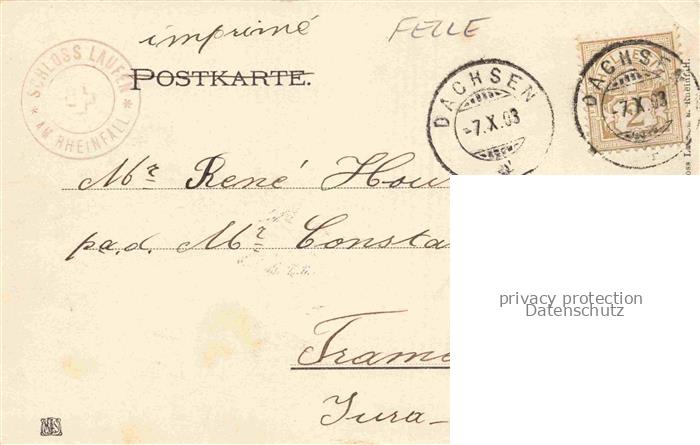 imprimé FELLE
SCHLOSS LAUFEN
* AM RHEINFALL. *
POSTKARTE.
DACHSEN
-7.X.03
DACHSE
-7.X.03
2
Mr René Hou
pa.d. Mr Consta
privacy protection
Datenschutz
Trame
Jura-